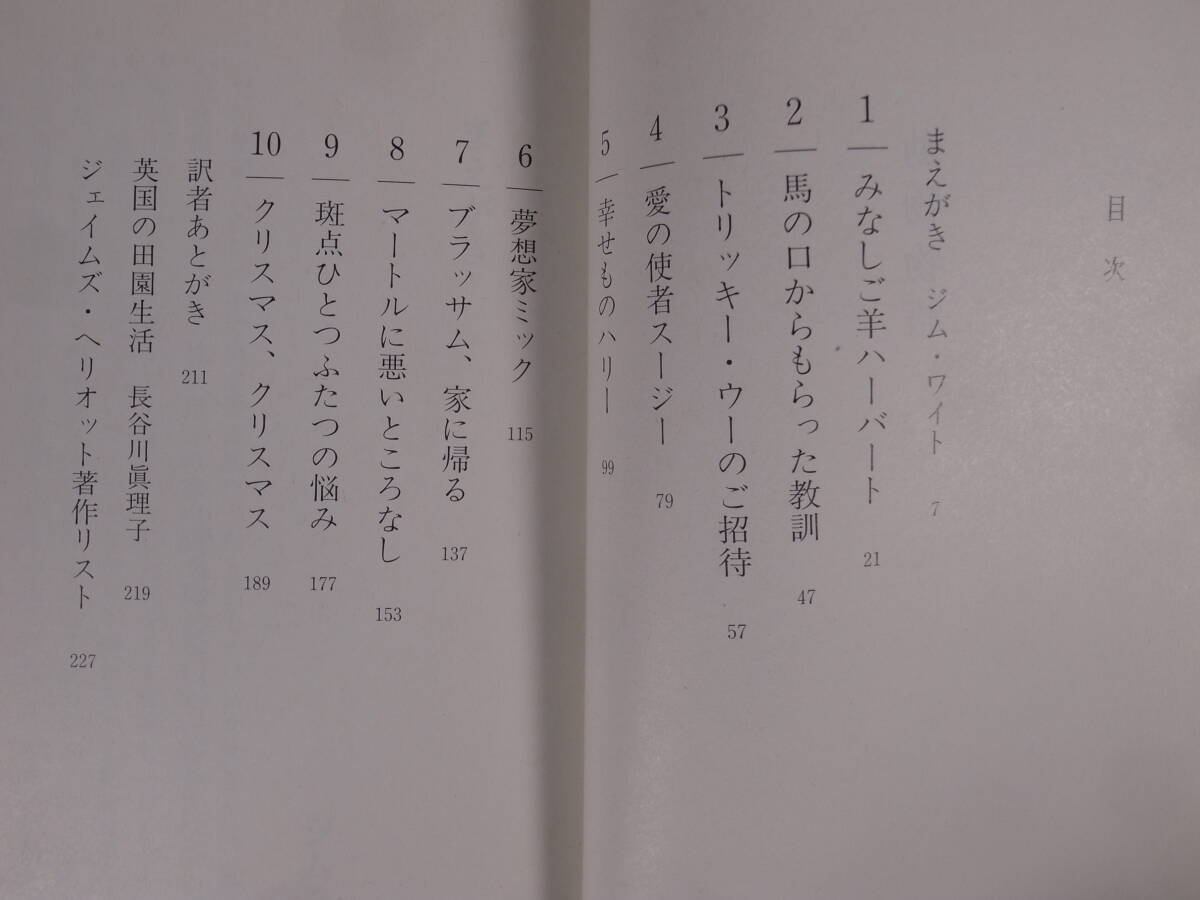 目次
まえがき　ジム・ワイト　7
1 みなしご羊ハーバート　21
2 馬の口からもらった教訓　47
3 トリッキー・ウーのご招待　57
4 愛の使者スージー　79
5 幸せものハリー　99
6 夢想家ミック　115
7 ブラッサム、家に帰る　137
8 マートルに悪いところなし　153
9 斑点ひとつふたつの悩み　177
10 クリスマス、クリスマス　189
訳者あとがき　211
英国の田園生活　長谷川眞理子　219
ジェイムズ・ヘリオット著作リスト　227